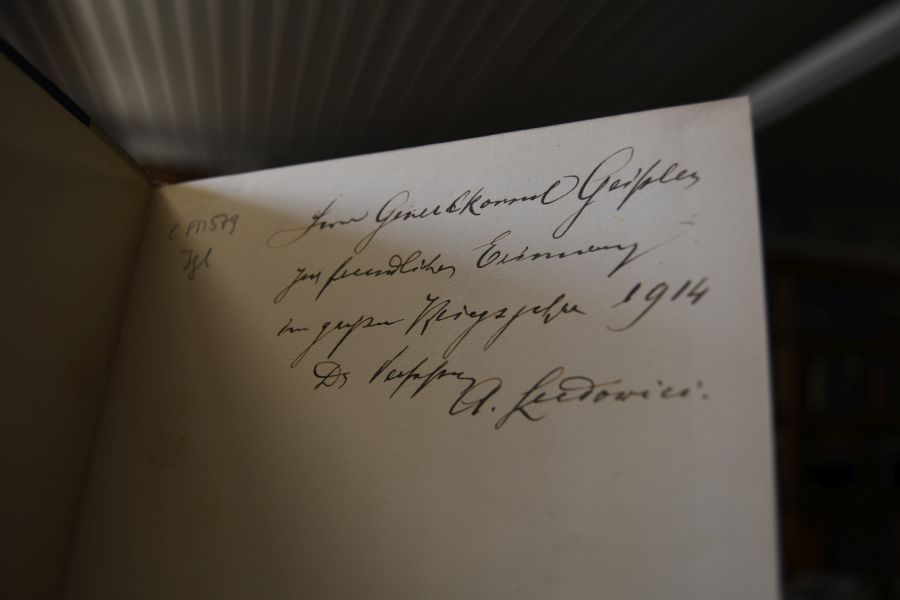 C FM 579
Herrn Generalkonsul Geißler
zur freundlichen Erinnerung
im großen Kriegsjahre 1914
Der Verfasser
A. Ludowici.